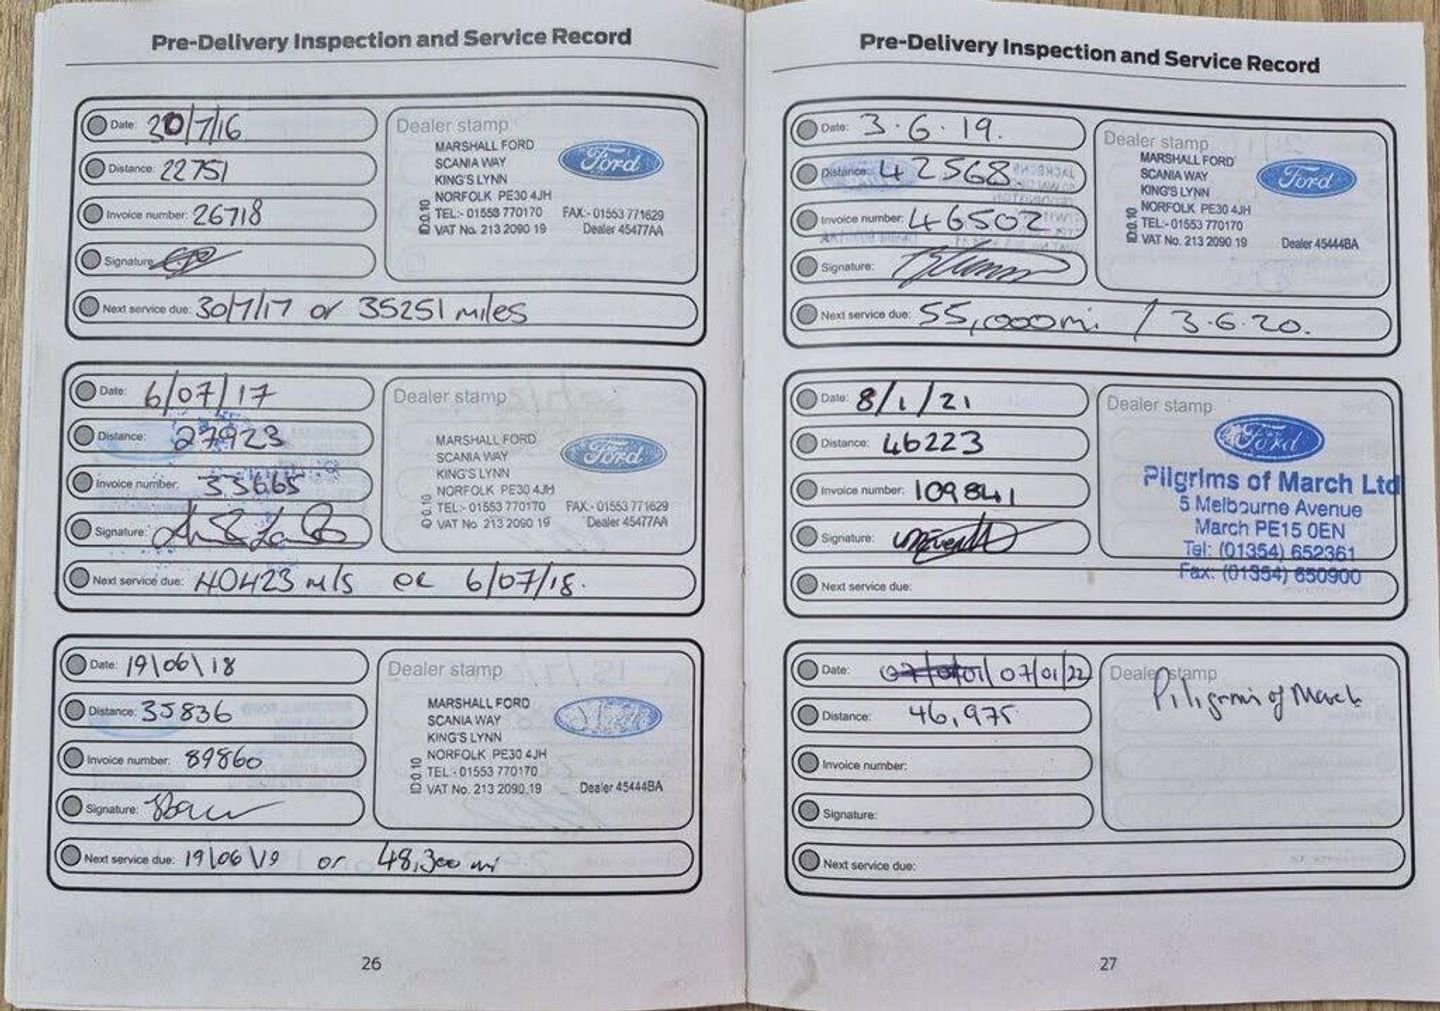 Pre-Delivery Inspection and Service Record
Date: 30/7/16
Distance: 22751
Invoice number: 26718
Signature:
Next service due: 30/7/17 or 35251 miles
Dealer stamp
MARSHALL FORD
SCANIA WAY
KING'S LYNN
NORFOLK PE30 4JH
TEL:- 01553 770170 FAX:- 01553 771629
VAT No. 213 2090 19 Dealer 45477AA
ID.0.10
Ford
Date: 6/07/17
Distance: 27923
Invoice number: 33665
Signature:
Next service due: 40423 mls or 6/07/18.
Dealer stamp
MARSHALL FORD
SCANIA WAY
KING'S LYNN
NORFOLK PE30 4JH
TEL:- 01553 770170 FAX:- 01553 771629
VAT No. 213 2090 19 Dealer 45477AA
Ford
Date: 19\06\18
Distance: 35836
Invoice number: 89860
Signature:
Next service due: 19\06\19 or 48,300 mi
Dealer stamp
MARSHALL FORD
SCANIA WAY
KING'S LYNN
NORFOLK PE30 4JH
TEL:- 01553 770170
VAT No. 213 2090 19 Dealer 45444BA
ID.0.10
26
Pre-Delivery Inspection and Service Record
Date: 3.6.19.
Distance: 42568
Invoice number: 46502
Signature:
Next service due: 55,000mi / 3.6.20.
Dealer stamp
MARSHALL FORD
SCANIA WAY
KING'S LYNN
NORFOLK PE30 4JH
TEL:- 01553 770170
VAT No. 213 2090 19 Dealer 45444BA
ID.0.10
Ford
Date: 8/1/21
Distance: 46223
Invoice number: 109841
Signature:
Next service due:
Dealer stamp
Ford
Pilgrims of March Ltd
5 Melbourne Avenue
March PE15 0EN
Tel: (01354) 652361
Fax: (01354) 650900
Date: 07/01/22
Distance: 46,975
Invoice number:
Signature:
Next service due:
Dealer stamp
Piligrims of March
27